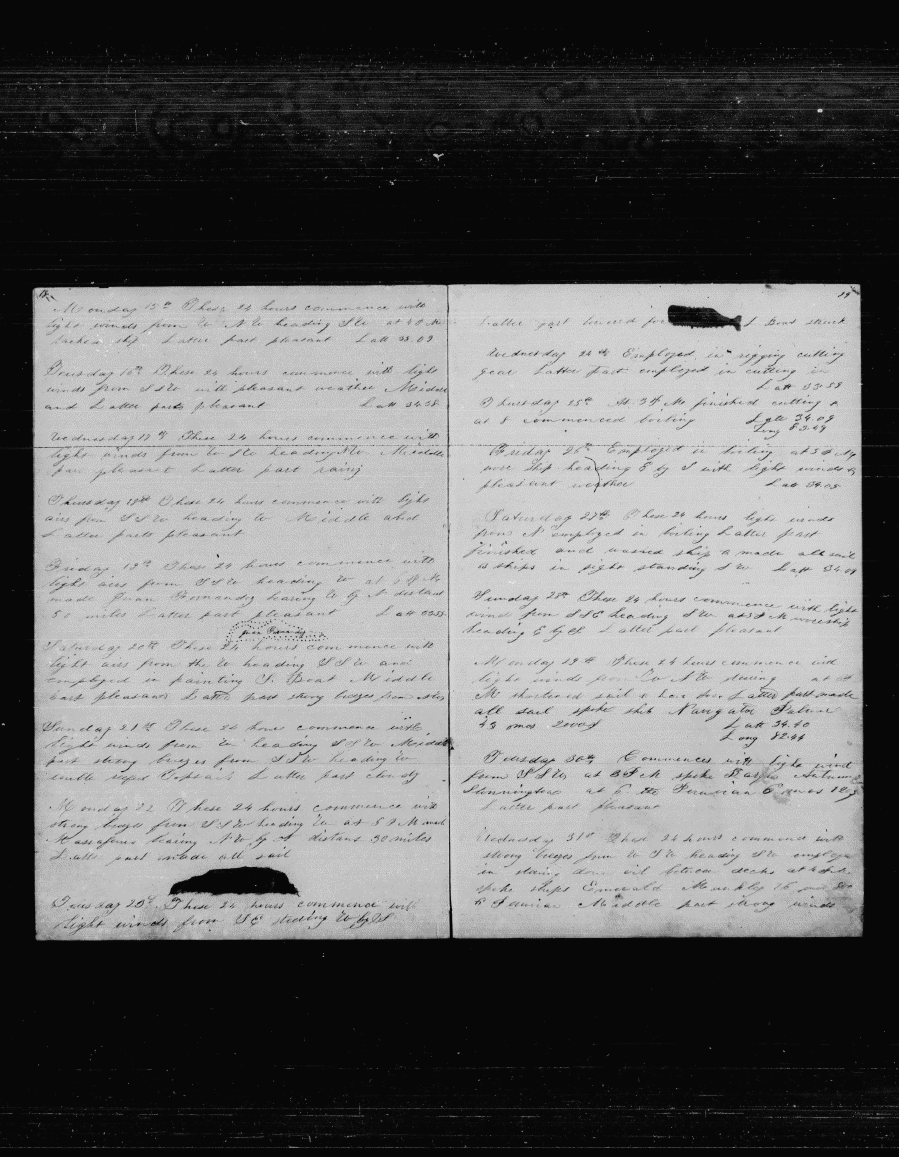 18
Monday 15th These 24 hours commence with
light winds from W N W heading S W at 4 P M
tacked ship Latter part pleasant Latt 33.09
Tuesday 16th These 24 hours commence with light
winds from S S W with pleasant weather Middle
and Latter parts pleasant Latt 34.38
Wednesday 17th These 24 hours commence with
light winds from W S W heading N W Middle
part pleasant Latter part rainy
Thursday 18th These 24 hours commence with light
airs from S S W heading W Middle and
Latter parts pleasant
Friday 19th These 24 hours commence with
light airs from S S W heading W at
made Juan Fernandez bearing W by N distant
50 miles Latter part pleasant Latt
Juan Fernandez
Saturday 20th These 24 hours commence with
light airs from the W heading S S W and
employed in painting S. Boat Middle
part pleasant Latter part strong breezes from
Sunday 21st These 24 hours commence with
light winds from W heading S S W Middle
part strong breezes from S S W heading W
double reefed Topsails Latter part cloudy
Monday 22 These 24 hours commence with
strong breezes from S S W heading W at 5 P M made
Massafuera bearing N W by N distans 30 miles
Latter part made all sail
Tuesday 23d These 24 hours commence with
light winds from S E steering W by N
19
Latter part lowered for L Boat struck
Wednesday 24th Employed in rigging cutting
gear Latter part employed in cutting in
Latt 33.58
Thursday 25th At 3 P M finished cutting &
at 8 commenced boiling Latt 34.09
Long 83.49
Friday 26th Employed in boiling at 5 P M
wore ship heading E by S with light winds &
pleasant weather Latt 34.05
Saturday 27th These 24 hours light winds
from N employed in boiling Latter part
finished and washed ship & made all sail
ships in sight standing S W Latt 34.09
Sunday 28th These 24 hours commence with light
wind from S S E heading S W at P M wore ship
heading E by S Latter part pleasant
Monday 29th These 24 hours commence with
light winds from W N W steering at
M shortened sail & hove too Latter part made
all sail spoke ship Navigator Palmer
43 mos 2000 Latt 34.40
Long 82.44
Tuesday 30th Commences with light wind
from S S W at 3 P M spoke Barque Autumn
Stonington at 6 the Peruvian 6 mos
Latter part pleasant
Wednesday 31st These 24 hours commence with
strong breezes from W S W heading S W employed
in stowing down oil between decks at
spoke ships Emerald
& Peruvian Middle part strong winds